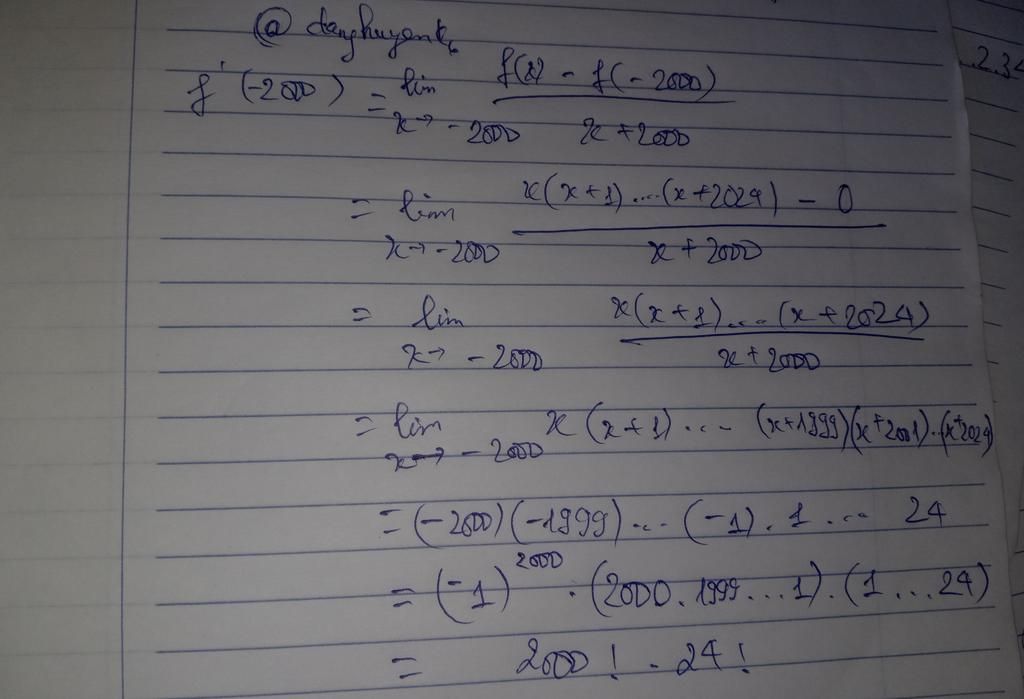 @ danghuyentk
2.34
f'(-2000) = lim x→-2000 (f(x) - f(-2000)) / (x+2000)
= lim x→-2000 (x(x+1)....(x+2024) - 0) / (x+2000)
= lim x→-2000 (x(x+1)....(x+2024)) / (x+2000)
= lim x→-2000 x(x+1)...(x+1999)(x+2001)..(x+2024)
= (-2000)(-1999)...(-1).1... 24
= (-1)^2000 . (2000.1999...1).(1...24)
= 2000! . 24!